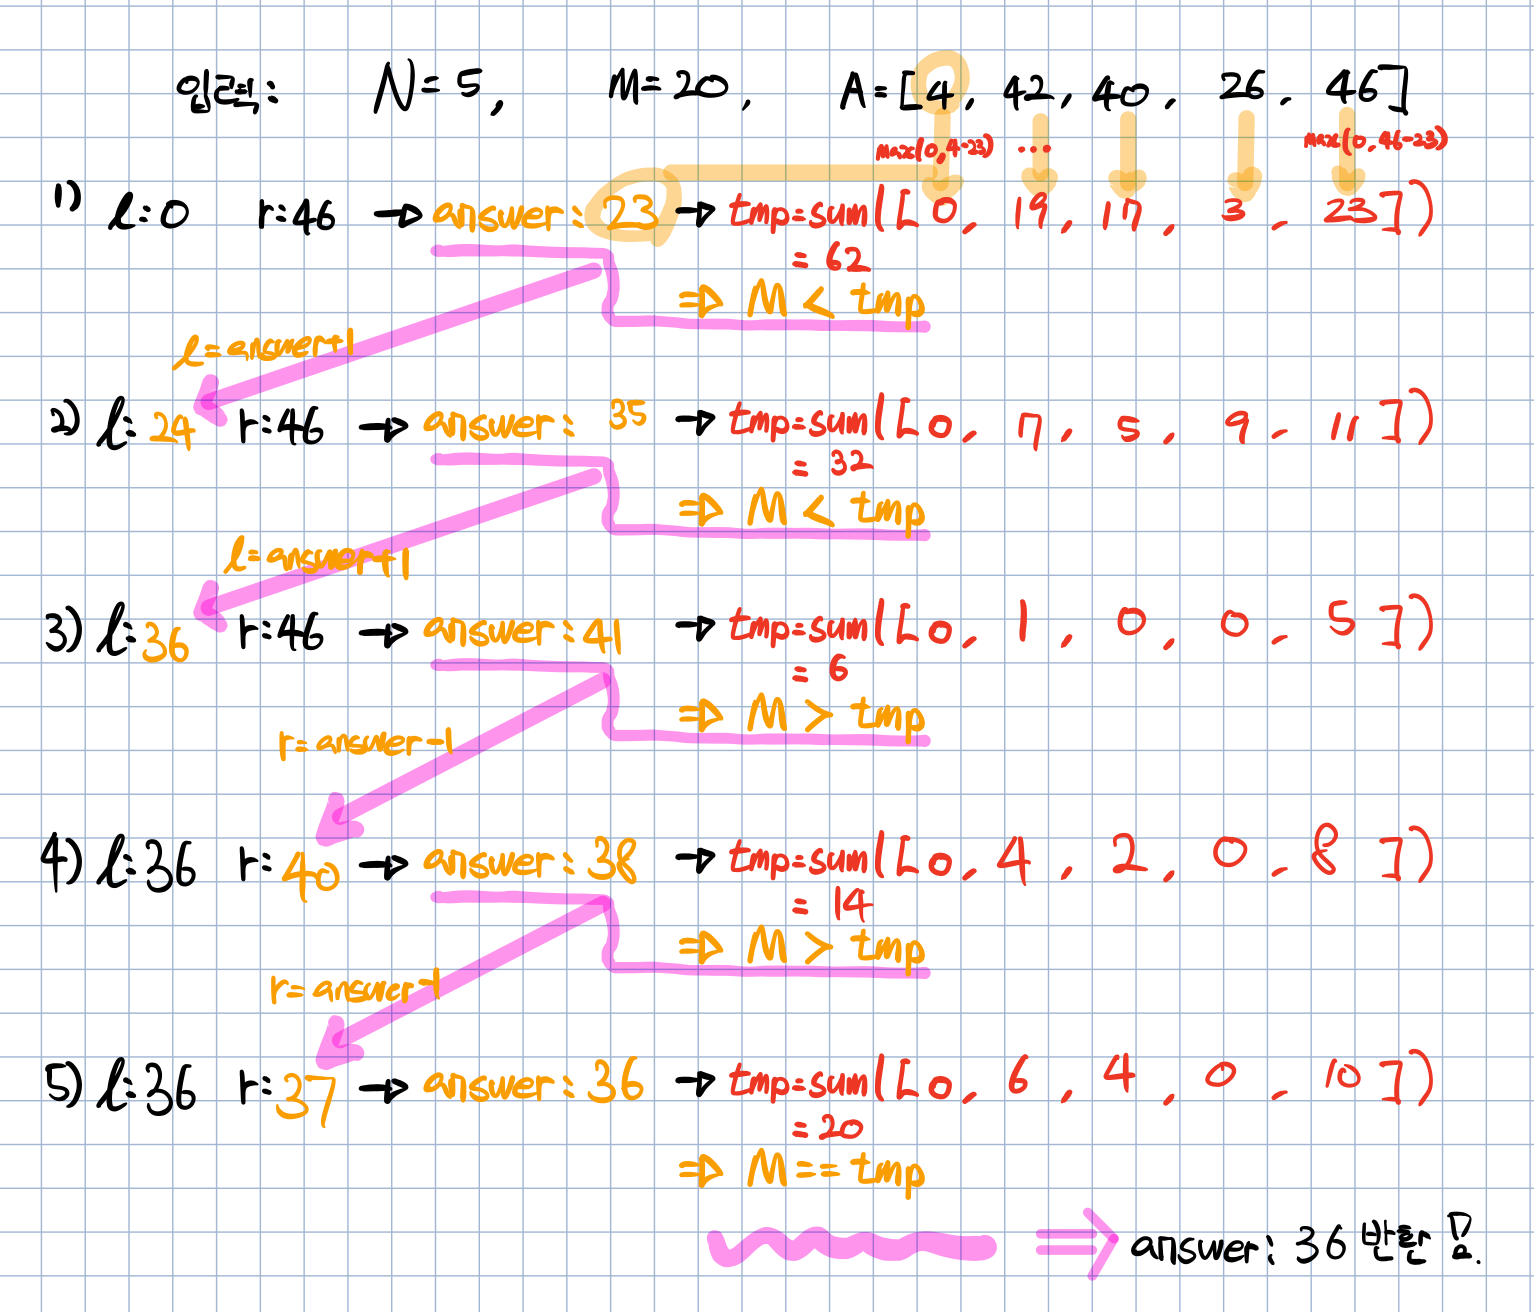 입력: N=5, M=20, A=[4, 42, 40, 26, 46]
max(0,4-23) ... max(0,46-23)
1) l:0 r:46 → answer: 23 → tmp=sum([0, 19, 17, 3, 23])
= 62
⇒ M < tmp
l=answer+1
2) l:24 r:46 → answer: 35 → tmp=sum([0, 7, 5, 9, 11])
= 32
⇒ M < tmp
l=answer+1
3) l:36 r:46 → answer: 41 → tmp=sum([0, 1, 0, 0, 5])
= 6
⇒ M > tmp
r=answer-1
4) l:36 r:40 → answer: 38 → tmp=sum([0, 4, 2, 0, 8])
= 14
⇒ M > tmp
r=answer-1
5) l:36 r:37 → answer: 36 → tmp=sum([0, 6, 4, 0, 10])
=20
⇒ M==tmp
⇒ answer: 36 반환!